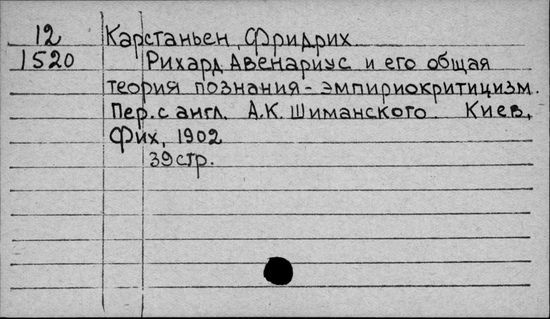 12 Карстаньен, Фридрих
1520 Рихард Авенариус и его общая
теория познания - эмпириокритицизм.
Пер. с англ. А.К. Шиманского. Киев,
Фих, 1902
39 стр.